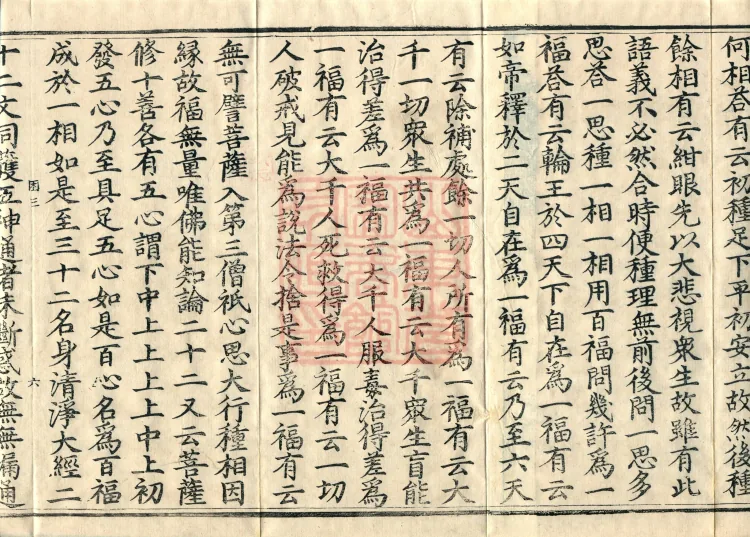 何相荅有云初種足下平初安立故然後種
餘相有云紺眼先以大悲視衆生故雖有此
語義不必然合時便種理無前後問一思多
思荅一思種一相一相用百福問幾許為一
福荅有云輪王於四天下自在為一福有云
如帝釋於二天自在為一福有云乃至六天
有云除補處餘一切人所有為一福有云大
千一切衆生共為一福有云大千衆生盲能
治得差為一福有云大千人服毒治得差為
一福有云大千人死救得為一福有云一切
人破戒見能為說法令捨是事為一福有云
無可譬菩薩入第三僧祇心思大行種相因
緣故福無量唯佛能知論二十二又云菩薩
修十善各有五心謂下中上上上上中上初
發五心乃至具足五心如是百心名為百福
成於一相如是至三十二名身清淨大經二
困三 六
十二文同護五神通者未斷惑故無無漏通